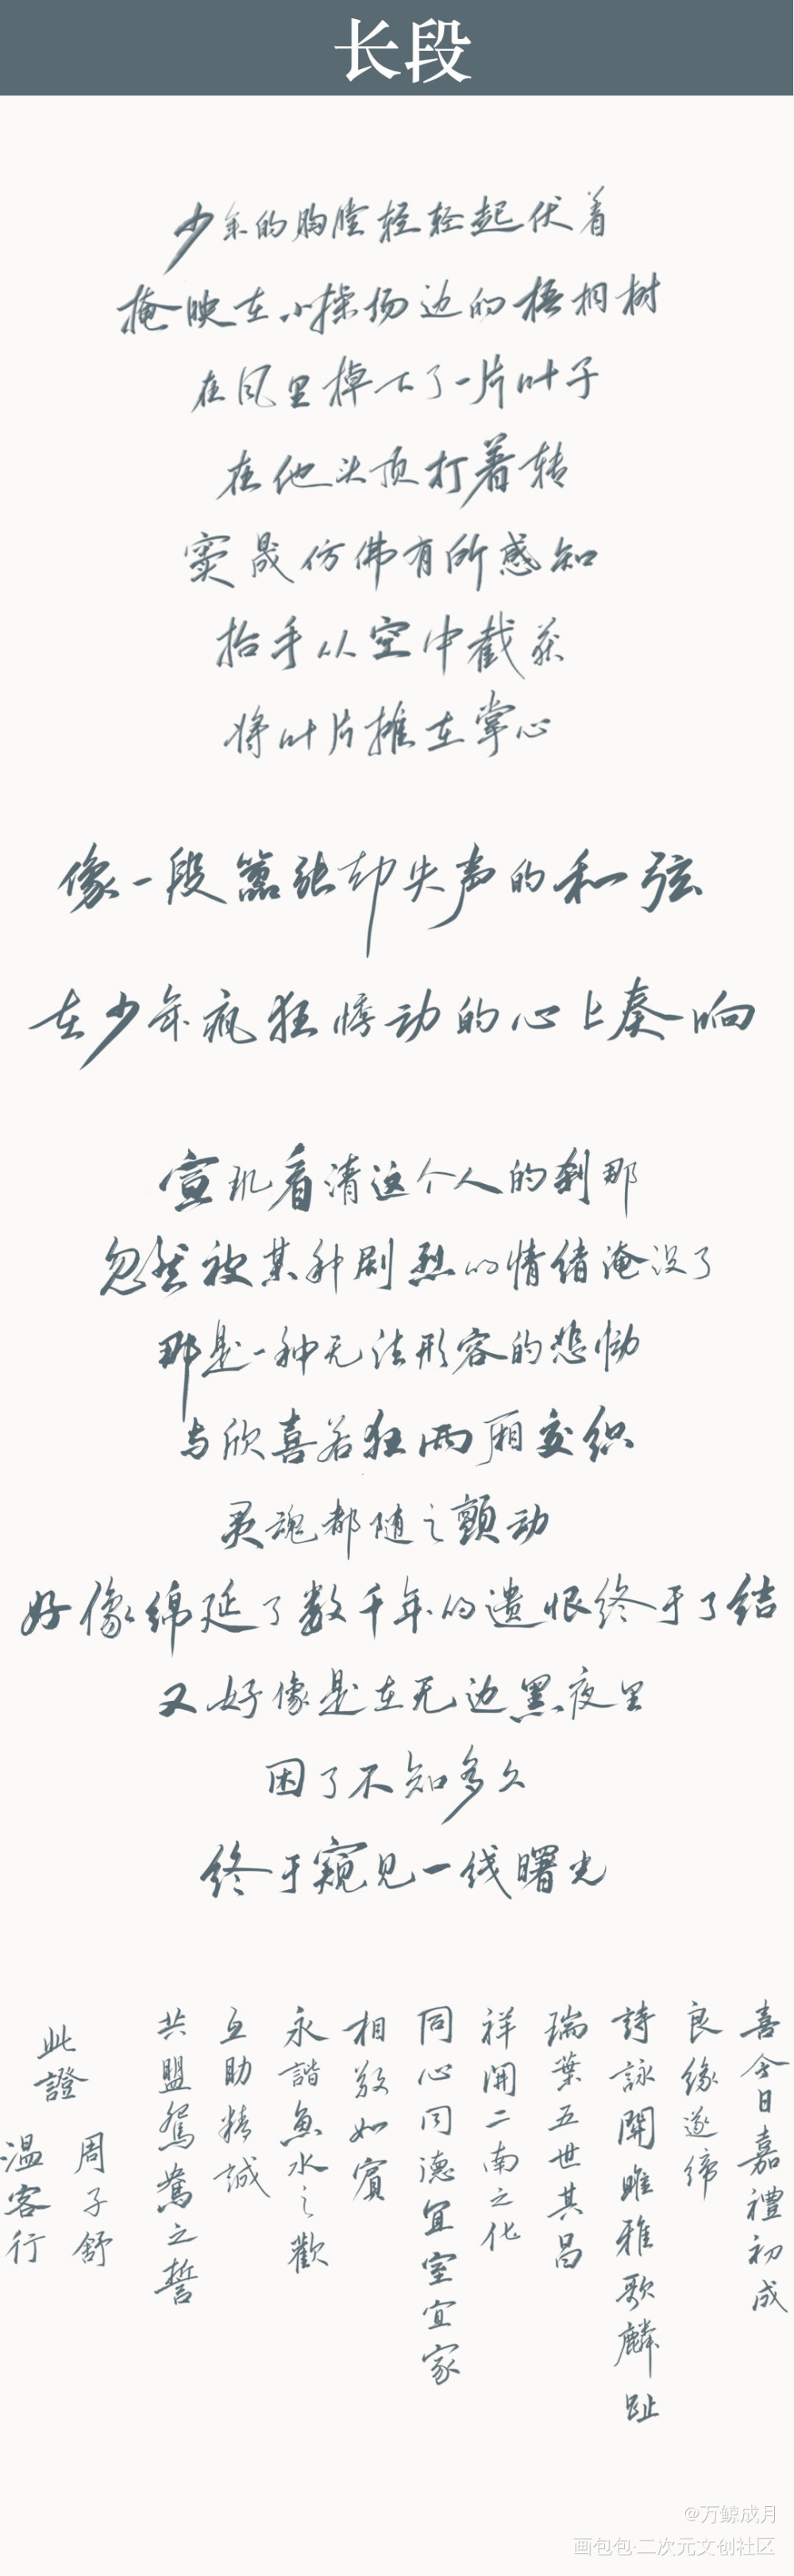 长段
少年的胸膛轻轻起伏着
掩映在小操场边的梧桐树
在风里掉下了一片叶子
在他头顶打着转
窦晟仿佛有所感知
抬手从空中截获
将叶片摊在掌心
像一段嚣张却失声的和弦
在少年疯狂悸动的心上奏响
宣玑看清这个人的刹那
忽然被某种剧烈的情绪淹没了
那是一种无法形容的悲恸
与欣喜若狂两厢交织
灵魂都随之颤动
好像绵延了数千年的遗恨终于了结
又好像是在无边黑夜里
困了不知多久
终于窥见一线曙光
喜今日嘉禮初成
良缘遂缔
詩詠關雎雅歌麟趾
瑞葉五世其昌
祥開二南之化
同心同德宜室宜家
相敬如賓
永諧魚水之歡
互助精誠
共盟鴛鴦之誓
此證
周子舒
溫客行
@万鲸成月
画包包·二次元文创社区